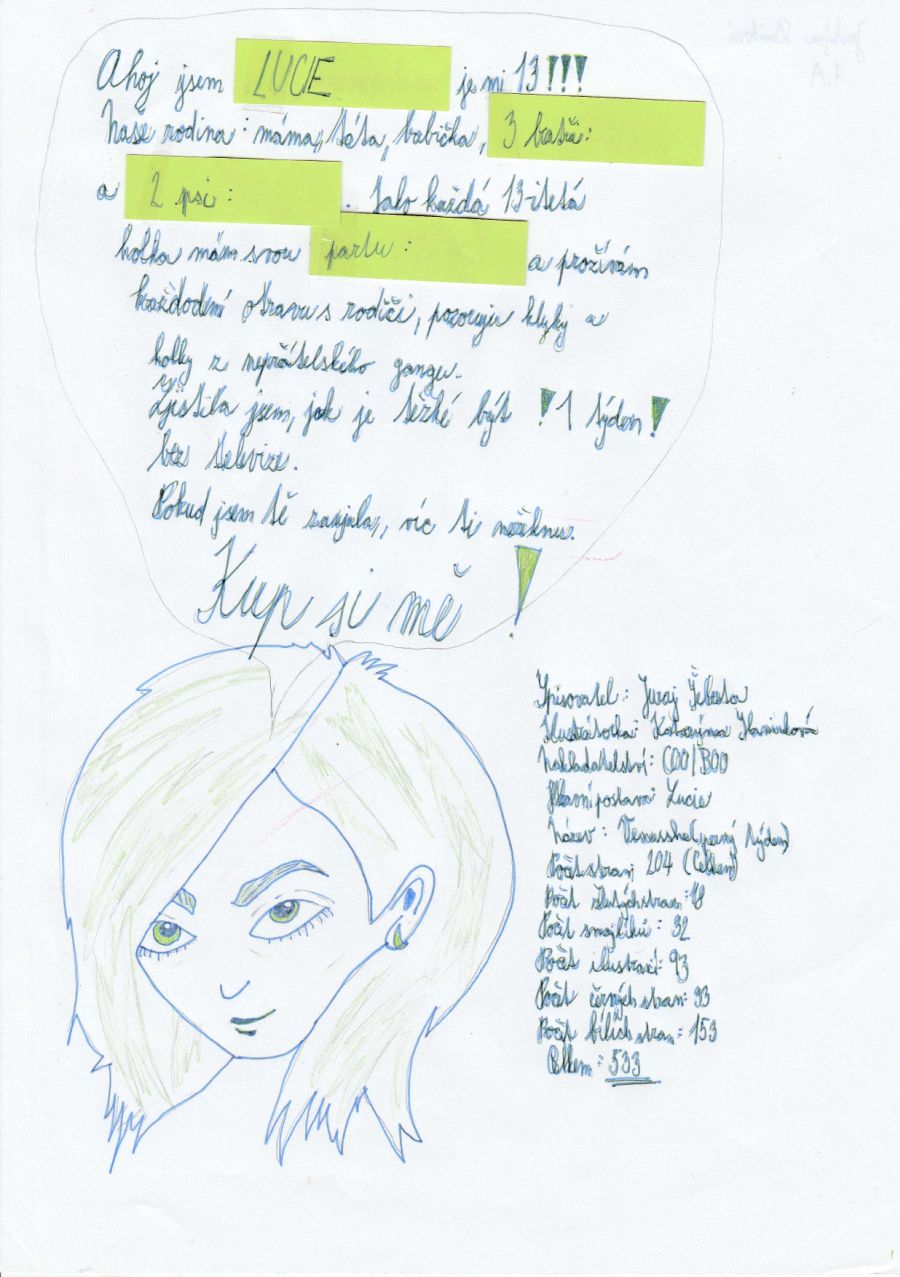 Ahoj jsem LUCIE je mi 13!!!
Naše rodina: máma, táta, babička, 3 bratři:
a 2 psi: . Jako každá 13-itetá
holka mám svou partu: a prožívám
každodení otravu s rodiči, pozoruju kluky a
holky z nepřátelského gangu.
Zjistila jsem, jak je těžké být !1 týden!
bez televize.
Pokud jsem tě zaujala, víc ti neřeknu.
Kup si mě !
Spisovatel: Juraj Šebesta
Ilustrátorka: Katarýna Slaninková
Nakladatelství: COO|BOO
Hlavní postava: Lucie
Název: Venussha (perný týden)
Počet stran: 204 (Celkem)
Počet žlutých stran: 18
Počet smajlíků: 32
Počet ilustrací: 93
Počet černých stran: 33
Počet bílich stran: 153
Celkem: 533